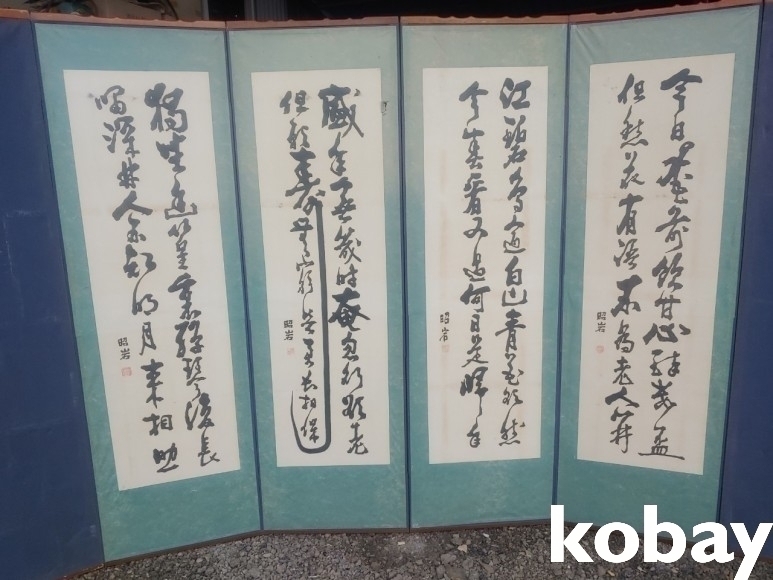 今日花前飲甘心醉數盃
但愁花有語不爲老人開
昭岩
江碧鳥逾白山青花欲然
今春看又過何日是歸年
昭岩
盛年無幾時奄忽行欲老
但願壽無窮與君長相保
昭岩
獨坐幽篁裏彈琴復長
嘯深林人不知明月來相照
昭岩
kobay